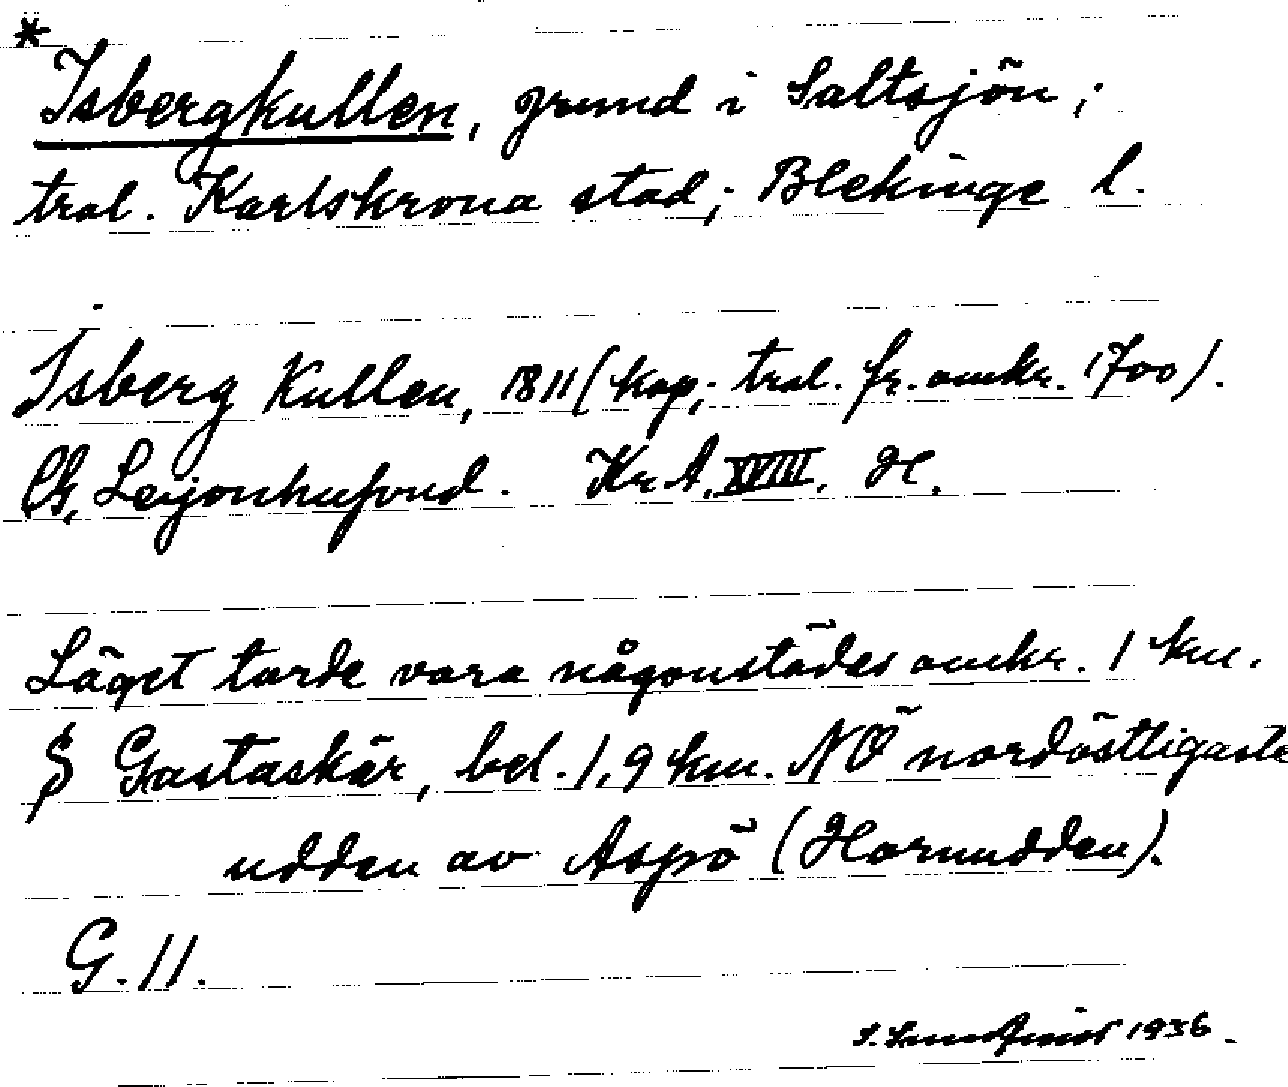 *
Isbergkullen, grund i Saltsjön;
tral. Karlskrona stad; Blekinge l.
Isberg Kullen, 1811 (kop; tral. fr. omkr. 1700).
Leijonhufvud. Kr.A. XVIII. H.
Läget torde vara någonstädes omkr. 1 km.
S Gastaskär, bel. 1,9 km. NÖ nordöstligaste
udden av Aspö (Hornudden).
G. 11.
1936.